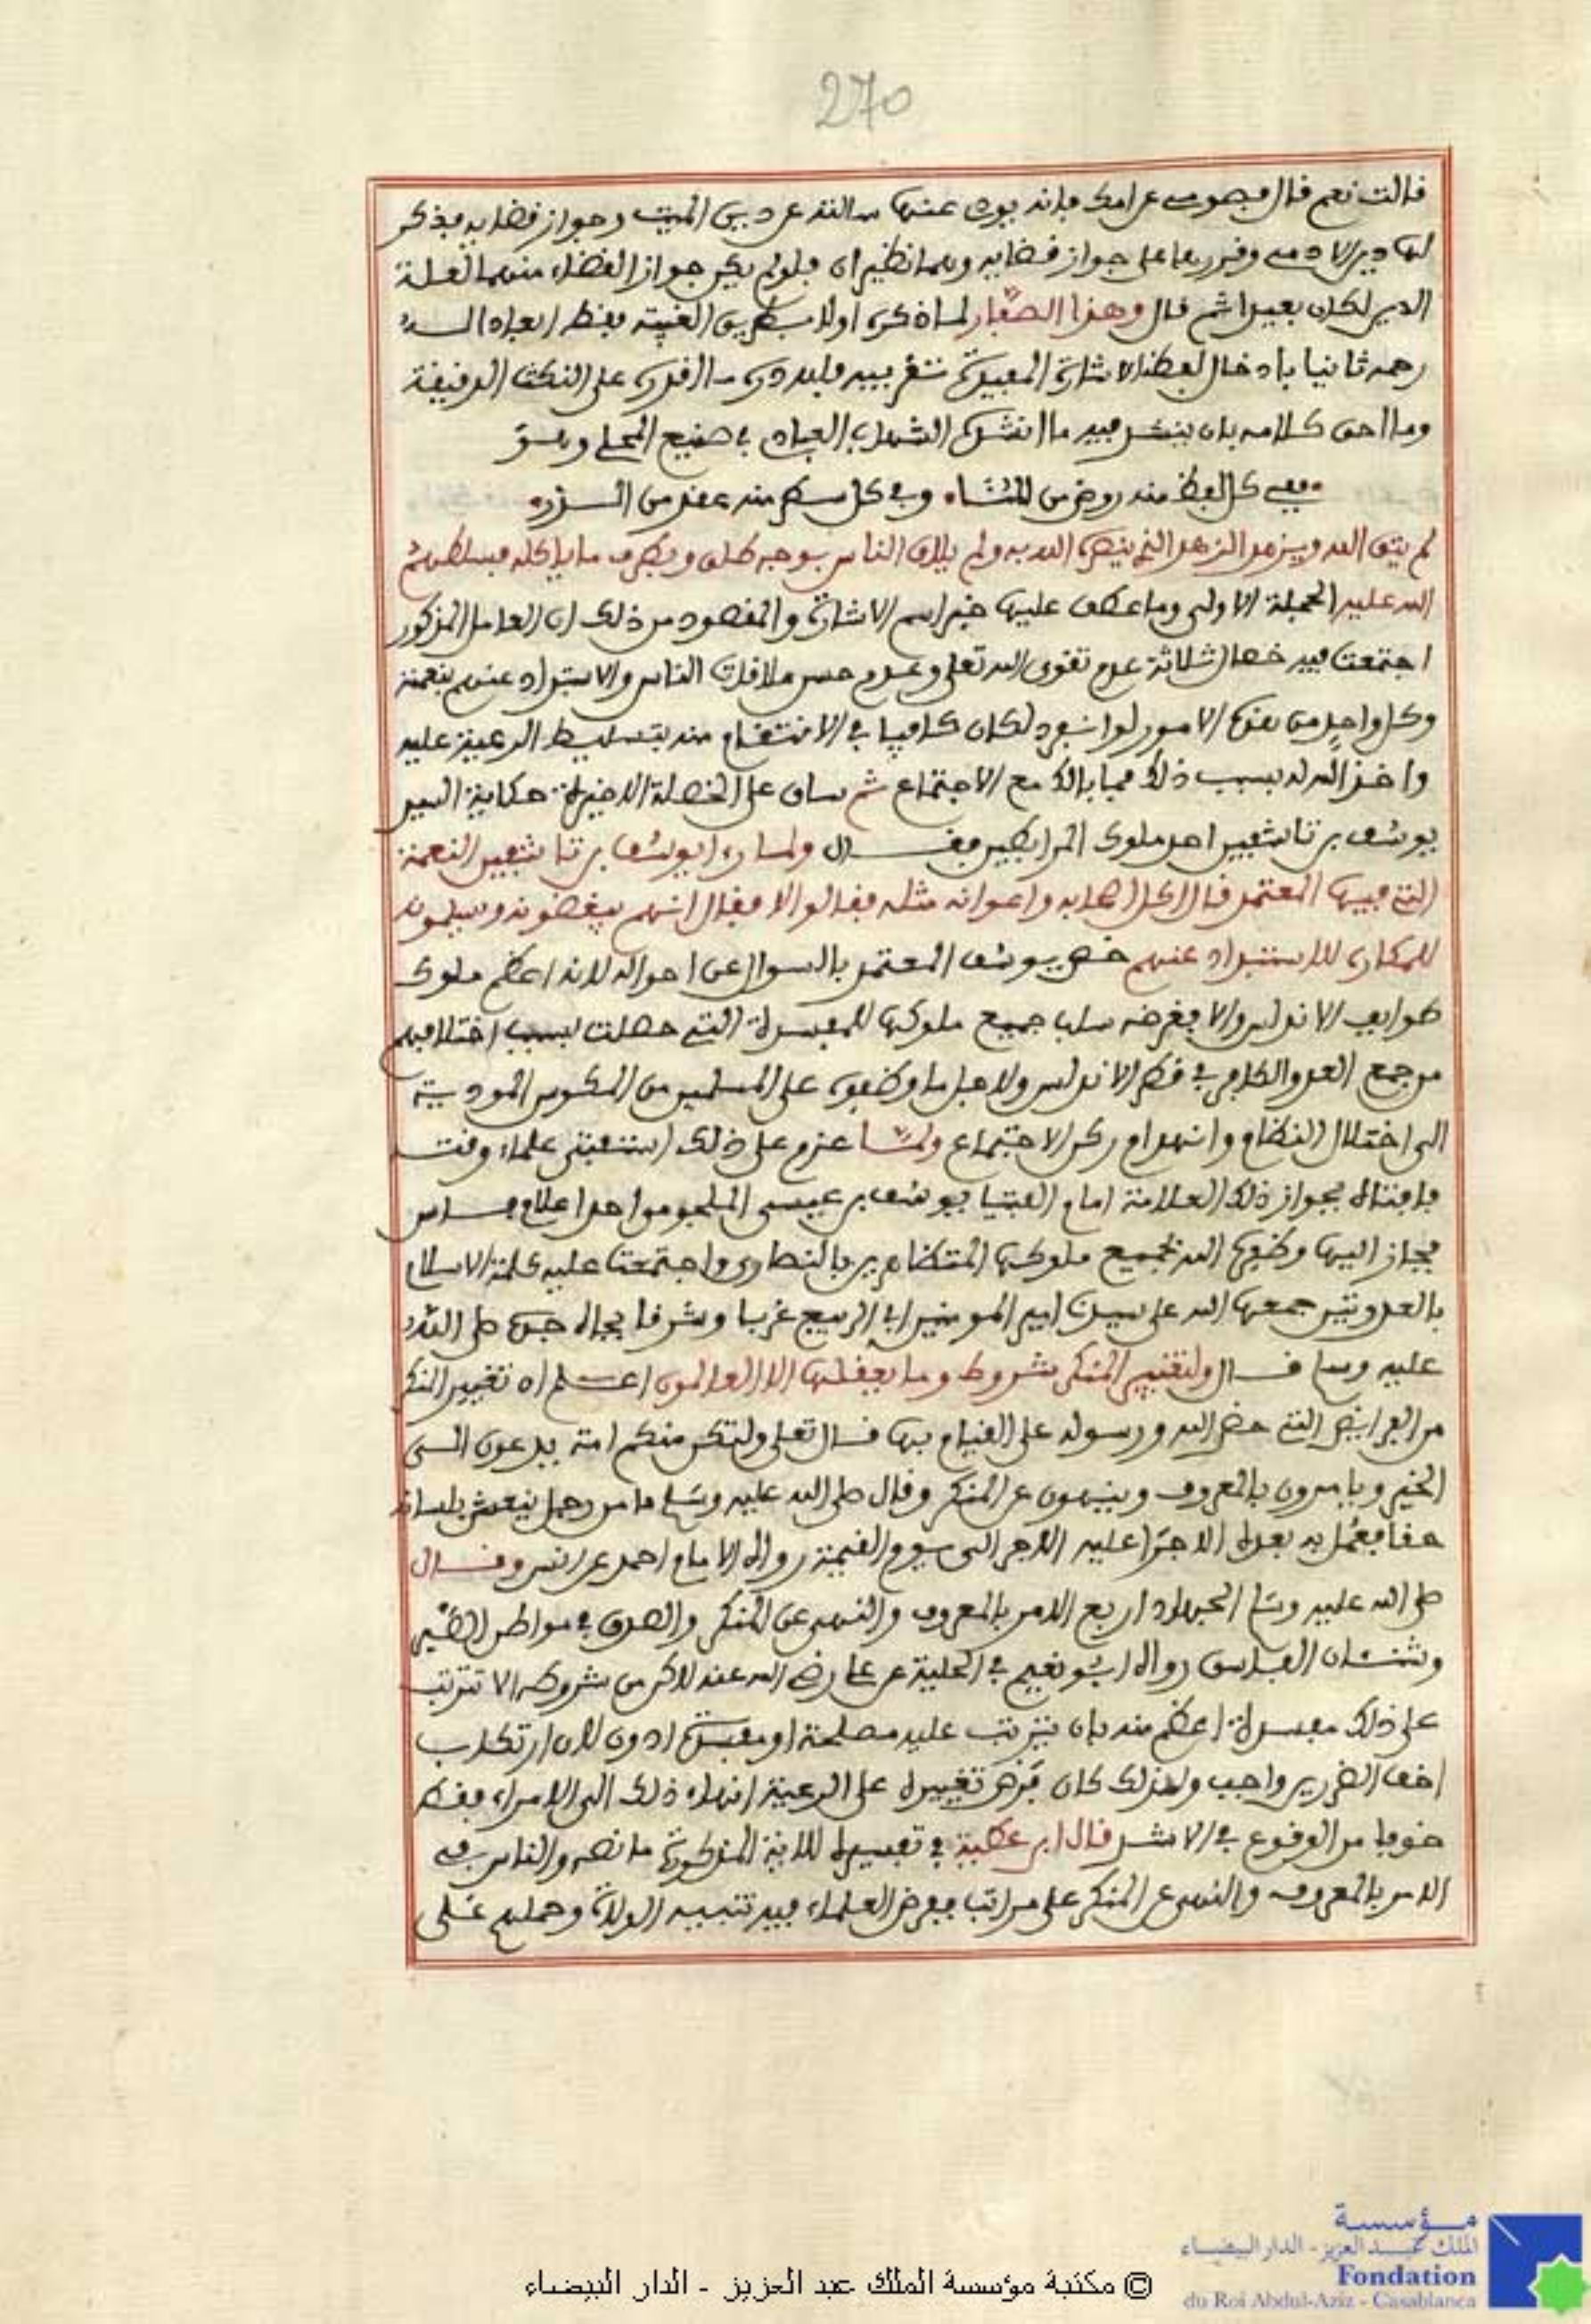 270
قالت نعم قال فصومي عن امك فإنه يودي عنها سالته عن دين الميت وجواز قضايه فذكر
لها دين الادمي وقررها على جواز قضايه وهما نظيران فلو لم يكن جواز القضاء منهما لعلة
الدين لكان بعيدا ثم قال وهذا الصفار لما ذكره اولا بطريق الغيبة بلفظ
رحمه ثانيا بادخال لفظ الاشارة المفيدة على النكت الدقيقة
وما احق كلامه بان ينشد فيه ما انشده الشهاب في صنيع المحلي وهو
ففي كل لفظ منه روض من المنا وفي كل سطر منه عقد من الدرر
لم يتق الله ويزهد الزهد الذي ينصره الله به ولم يلاق الناس بوجه طلق ويطرف ما ياكله فسلطهم
الله عليه الجملة الاولى وما عطف عليها خبر اسم الاشارة والمقصود من ذلك ان العامل المذكور
اجتمعت فيه خصال ثلاثة عدم تقوى الله تعلى وعدم حسن ملاقات الناس والاستبداد عنهم بنعمة
وكل واحد من هذه الامور لو انفرد لكان كافيا في الانتقام منه بتسليط الرعية عليه
واخذ الله له بسبب ذلك فما بالك مع الاجتماع ثم ساق على الخصلة الاخيرة حكاية السيد
يوسف بن تاشفين احد ملوك المرابطين فقال ولما رءا يوسف بن تاشفين النعمة
التي فيها المعتمد قال اكل اصحابه واعوانه مثله فقالوا لا فقال انهم يبغضونه ويسلمونه
للمكاره للاستبداد عنهم خص يوسف المعتمد بالسوال عن احواله لانه اعظم ملوك
طوايف الاندلس والا فغرضه سلب جميع ملوكها للمفسدة التي حصلت بسبب اختلافهم
من جمع العدو الكافر في قطر الاندلس ولاجل ما وضفوه على المسلمين من المكوس المودية
الى اختلال النظام وانهدام ركن الاجتماع ولما عزم على ذلك استفتى علماء وقته
فافتاه بجواز ذلك العلامة امام الفتيا يوسف بن عيسى الملجوم احد اعلام فاس
فجاز اليها وظفره الله بجميع ملوكها المتظاهرين بالنصارى واجتمعت عليه كلمة الاسلام
بالعدوتين جمعها الله على سيدنا امير المومنين ابي الربيع غربا وشرقا بجاه جده صلى الله
عليه وسلم قال ولتغيير المنكر شروط وما يعقلها الا العالمون اعلم ان تغيير المنكر
من الفرايض التي حض الله ورسوله على القيام بها قال تعلى ولتكن منكم امة يدعون الى
الخير ويامرون بالمعروف وينهون عن المنكر وقال صلى الله عليه وسلم ما من رجل ينعش بلسانه
حقا فعمل به بعده الا جرا عليه الاجر الى يوم القيمة رواه الامام احمد عن انس وقال
صلى الله عليه وسلم الجهاد اربع الامر بالمعروف والنهي عن المنكر والصدق في مواطن الصبر
وشنئان الفاسق رواه ابو نعيم في الحلية عن علي رضي الله عنه لاكن من شروطه الا تترتب
على ذلك مفسدة اعظم منه بان يترتب عليه مصلحة او مفسدة ادون لان ارتكاب
اخف الضررين واجب ولذلك كان فرض تغييره على الرعية انهاء ذلك الى الامراء فقط
خوفا من الوقوع في الاشد قال ابن عطية في تفسيره للاية المذكورة ما نصه والناس في
الامر بالمعروف والنهي عن المنكر على مراتب ففرض العلماء فيه تنبيه الولاة وحملهم على
مؤسسة
الملك عبد العزيز - الدار البيضاء
Fondation
du Roi Abdul-Aziz - Casablanca
© مكتبة مؤسسة الملك عبد العزيز - الدار البيضاء